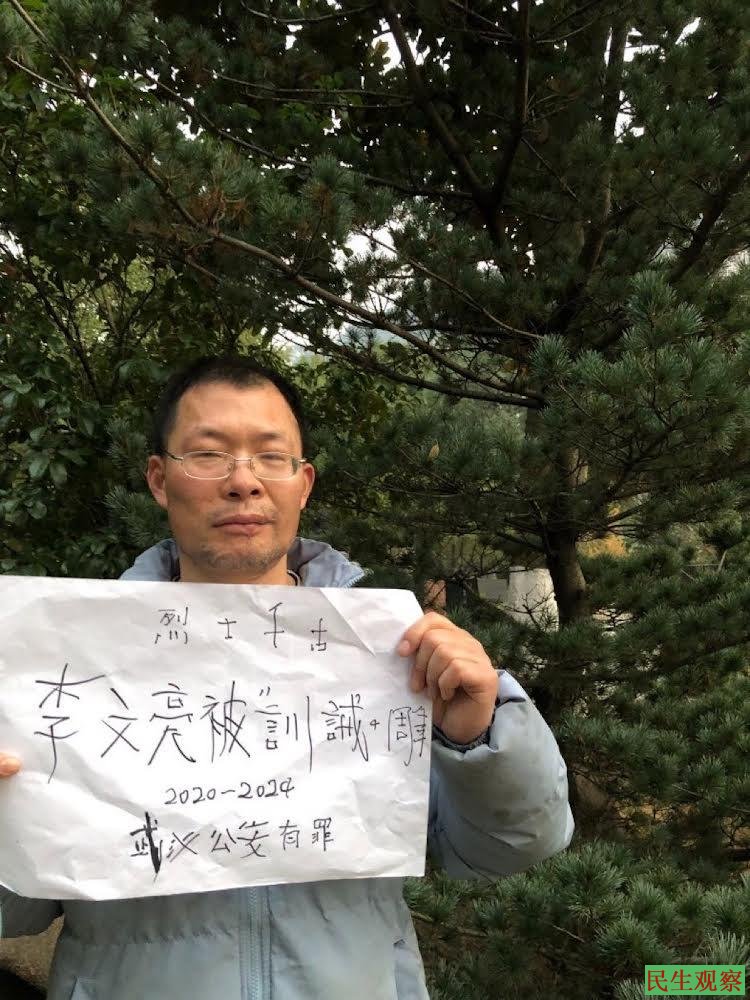 烈士千古
李文亮被"訓誡"4周年
2020-2024
武汉公安有罪
民生观察